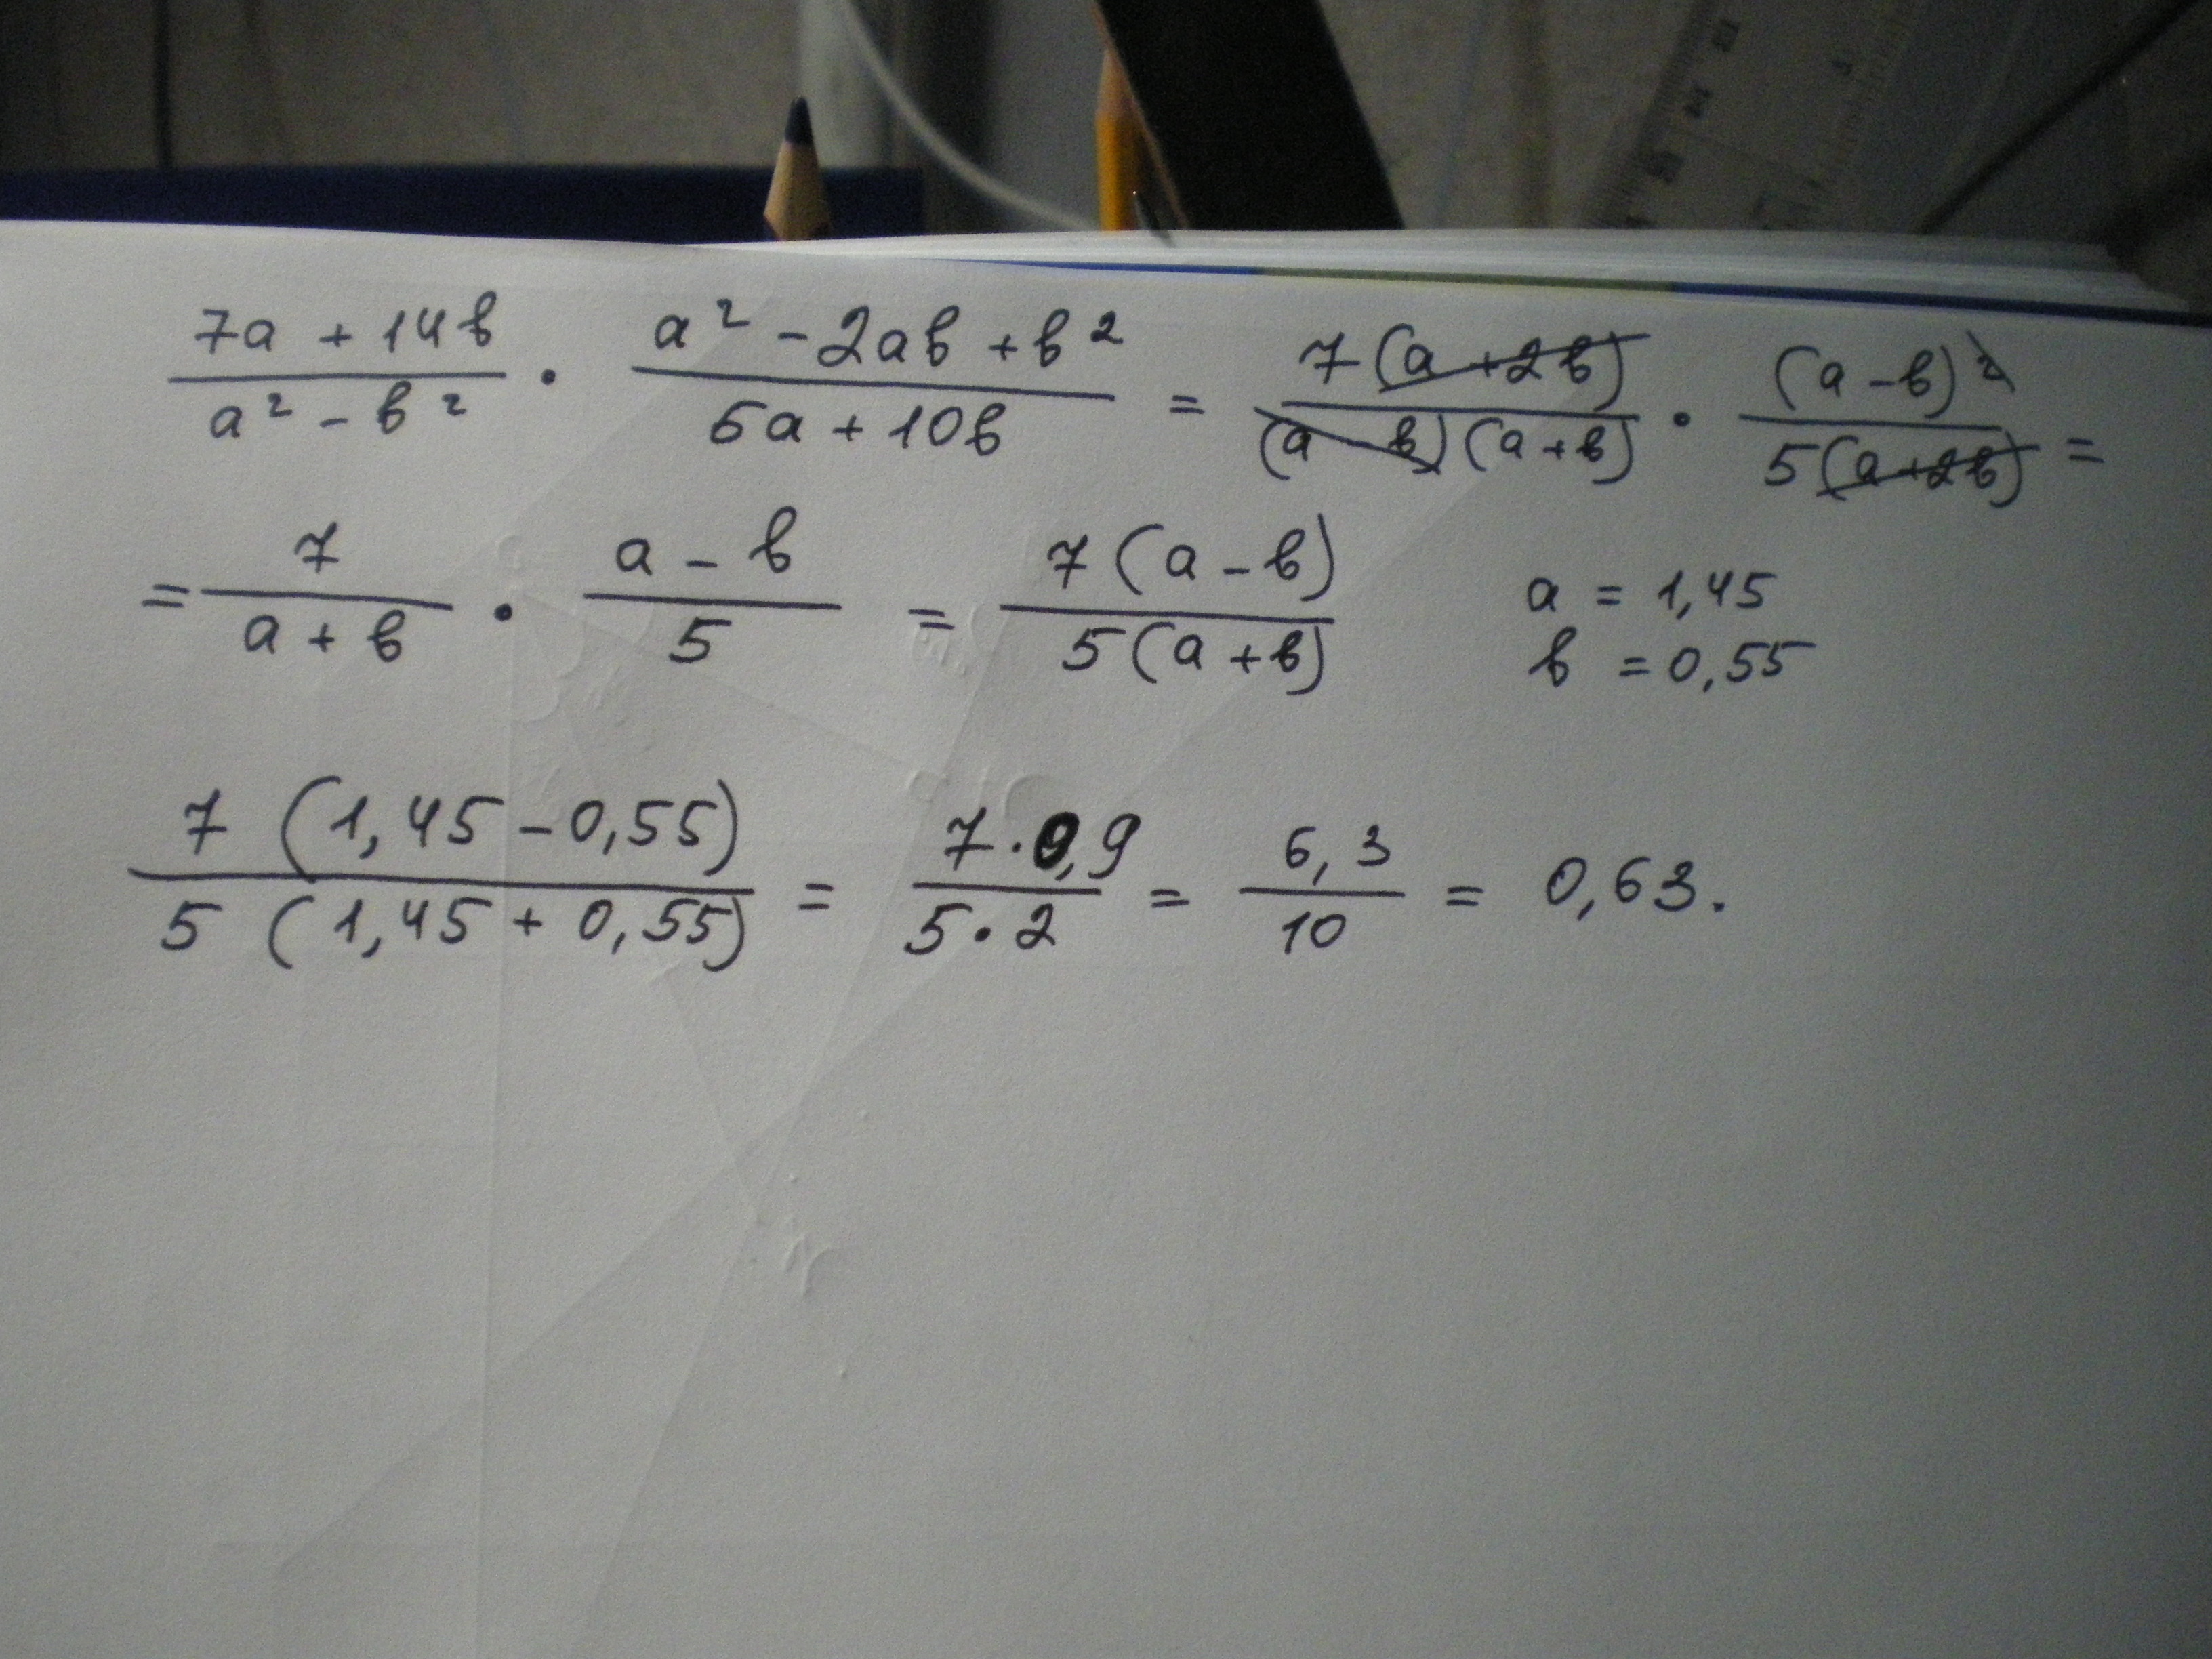 (7a + 14b)/(a² - b²) · (a² - 2ab + b²)/(5a + 10b) = 7(a + 2b)/((a - b)(a + b)) · (a - b)²/(5(a + 2b)) =
= 7/(a + b) · (a - b)/5 = 7(a - b)/(5(a + b)) a = 1,45
b = 0,55
7(1,45 - 0,55)/(5(1,45 + 0,55)) = (7 · 0,9)/(5 · 2) = 6,3/10 = 0,63.